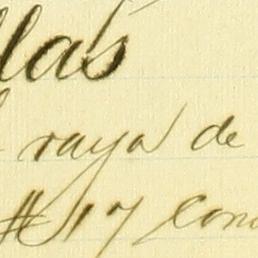 llas
raya de
#17 Con